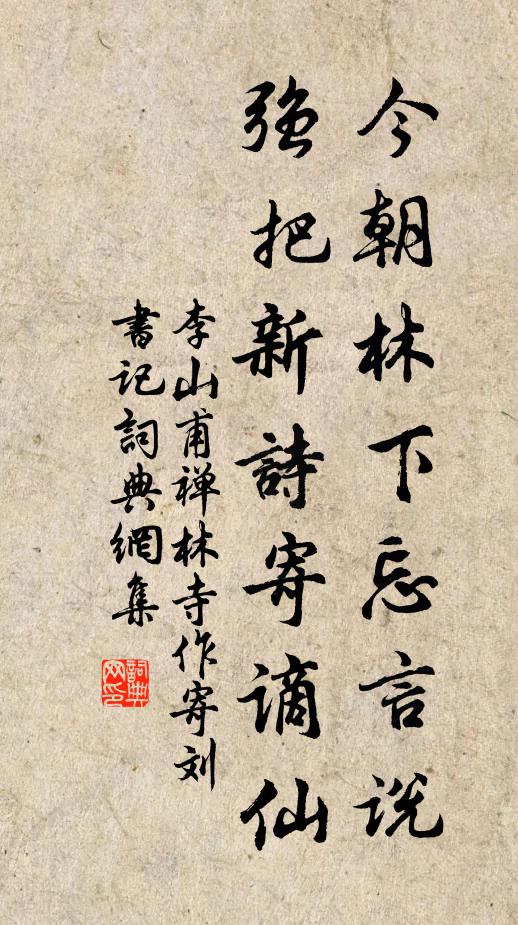 今朝林下忘言说
强把新詩寄谪仙
李山甫禅林寺作寄刘
書记詞典網集
詞典网印